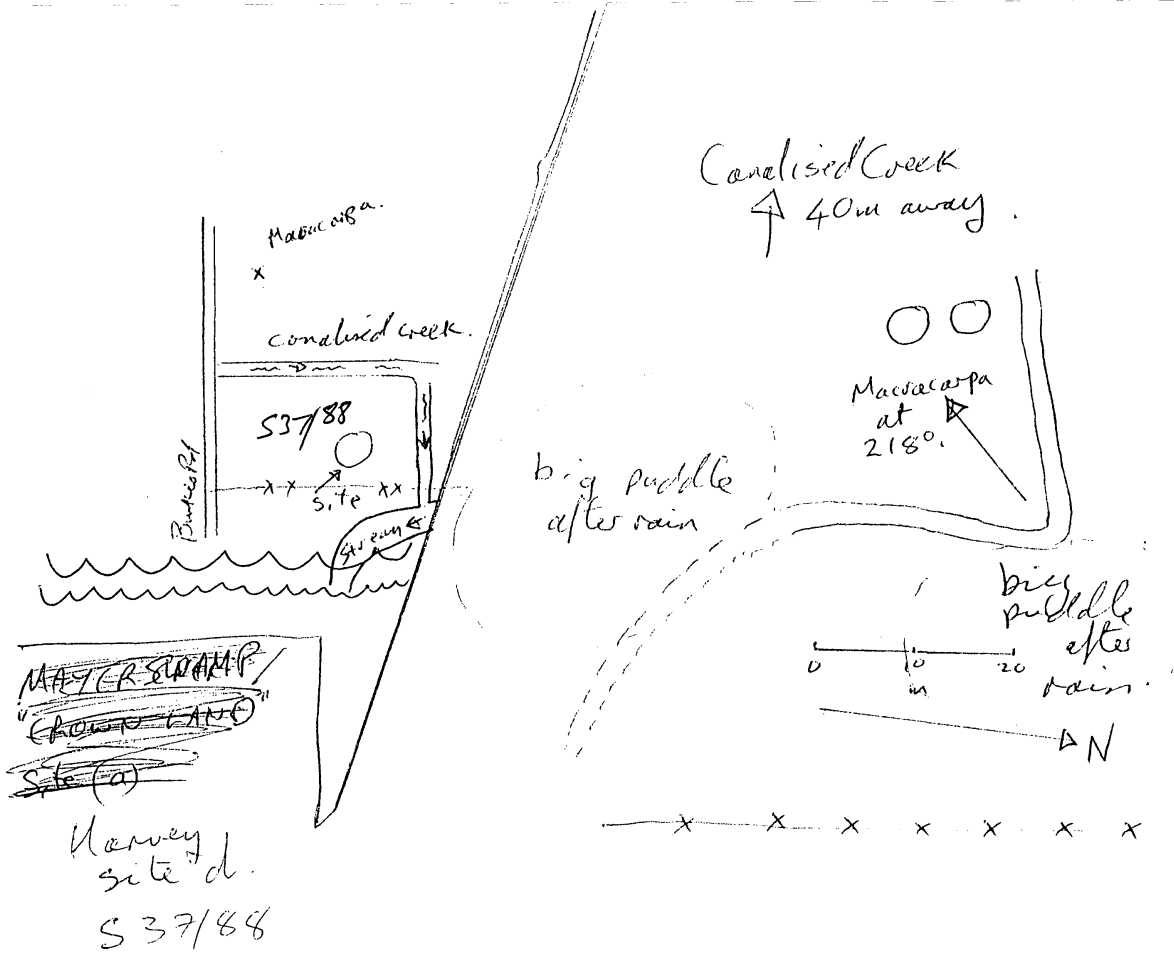 Macrocarpa.
x
canalised creek.
S37/88
x x
site
xx
stream
MAYER SWAMP/
"CROWN LAND"
Site (a)
Harvey
site d.
S 37/88
Canalised Creek
40m away.
Macrocarpa
at
218°.
big puddle
after rain
big
puddle
after
rain.
0 10 20
m
N
x x x x x x x